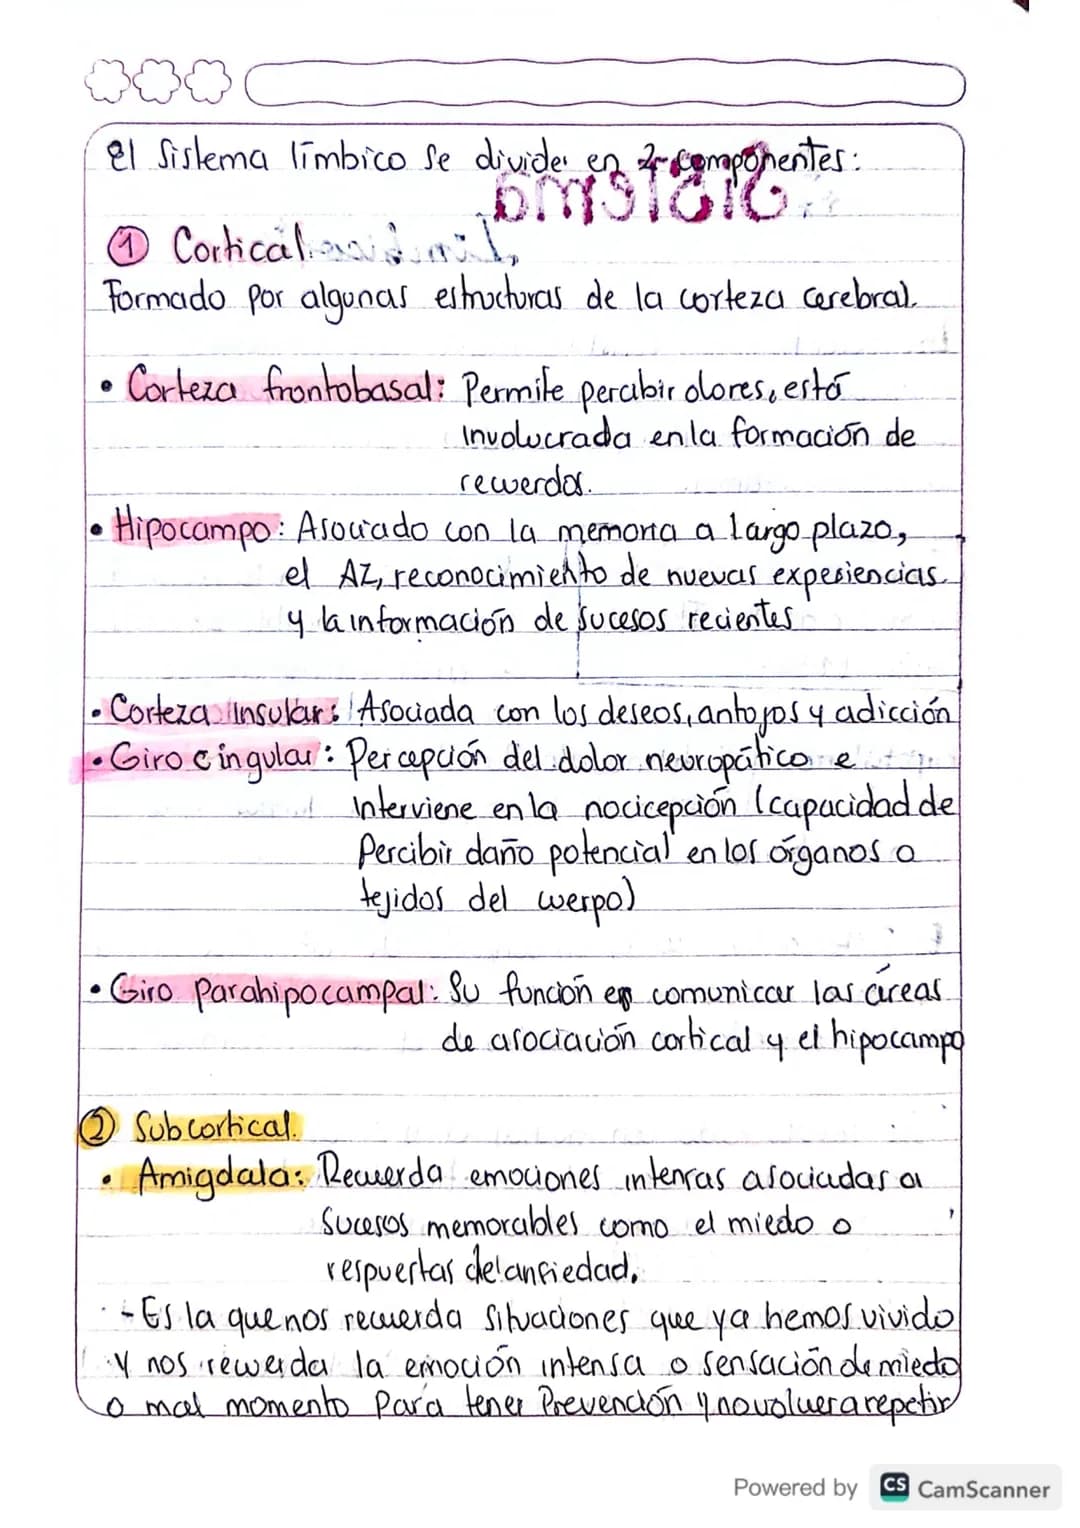 El Sistema límbico se divide en 2 componentes:
Sistema
límbico
① Cortical.
Formado por algunas estructuras de la corteza cerebral.
• Corteza frontobasal: Permite percibir olores, está
involucrada en la formación de
recuerdos.
• Hipocampo: Asociado con la memoria a largo plazo,
el AZ, reconocimiento de nuevas experiencias
y la información de sucesos recientes
• Corteza Insular: Asociada con los deseos, antojos y adicción
• Giro cingular: Percepción del dolor neuropático e
interviene en la nocicepción (capacidad de
Percibir daño potencial en los órganos o
tejidos del cuerpo)
• Giro Parahipocampal: Su función es comunicar las áreas
de asociación cortical y el hipocampo
② Subcortical.
• Amigdala: Recuerda emociones intensas asociadas a
Sucesos memorables como el miedo o
respuestas de ansiedad.
- Es la que nos recuerda situaciones que ya hemos vivido
y nos recuerda la emoción intensa o sensación de miedo
o mal momento Para tener Prevención y no volver a repetir
Powered by CS CamScanner